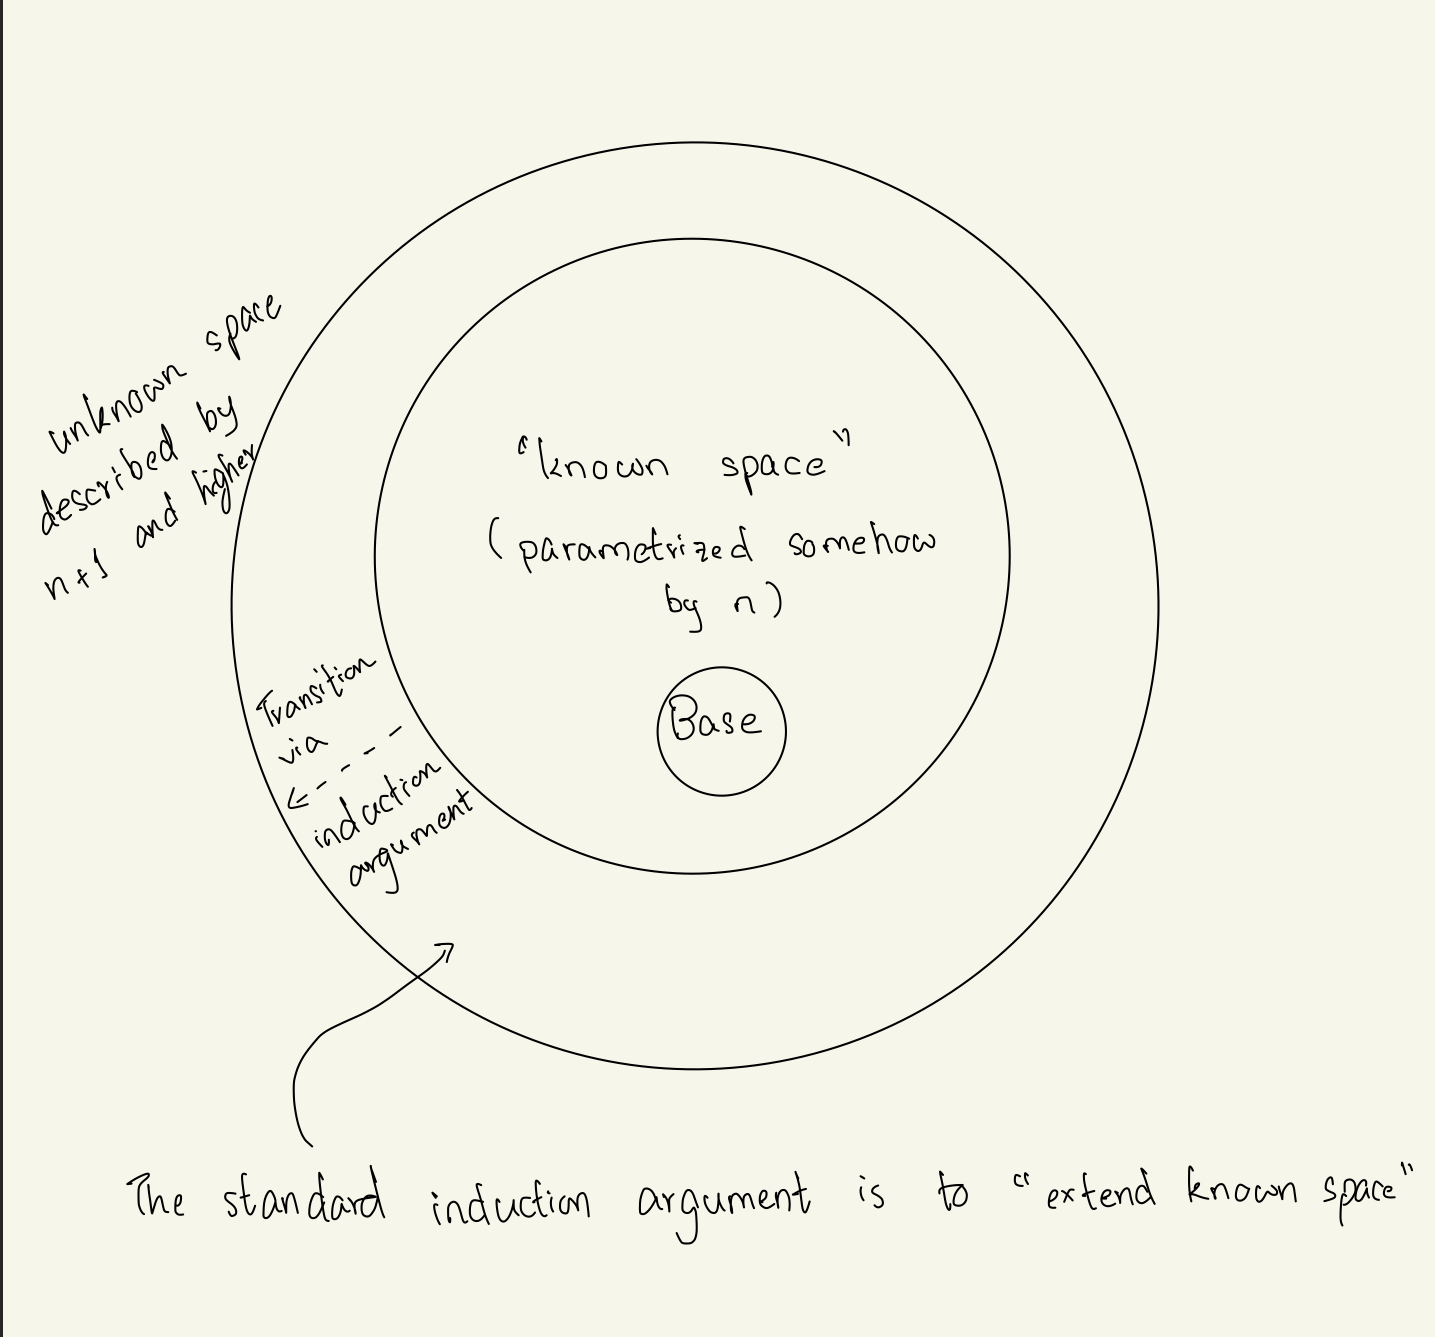 unknown space
described by
n+1 and higher
"known space"
(parametrized somehow
by n)
Base
Transition
via
induction
argument
The standard induction argument is to "extend known space"